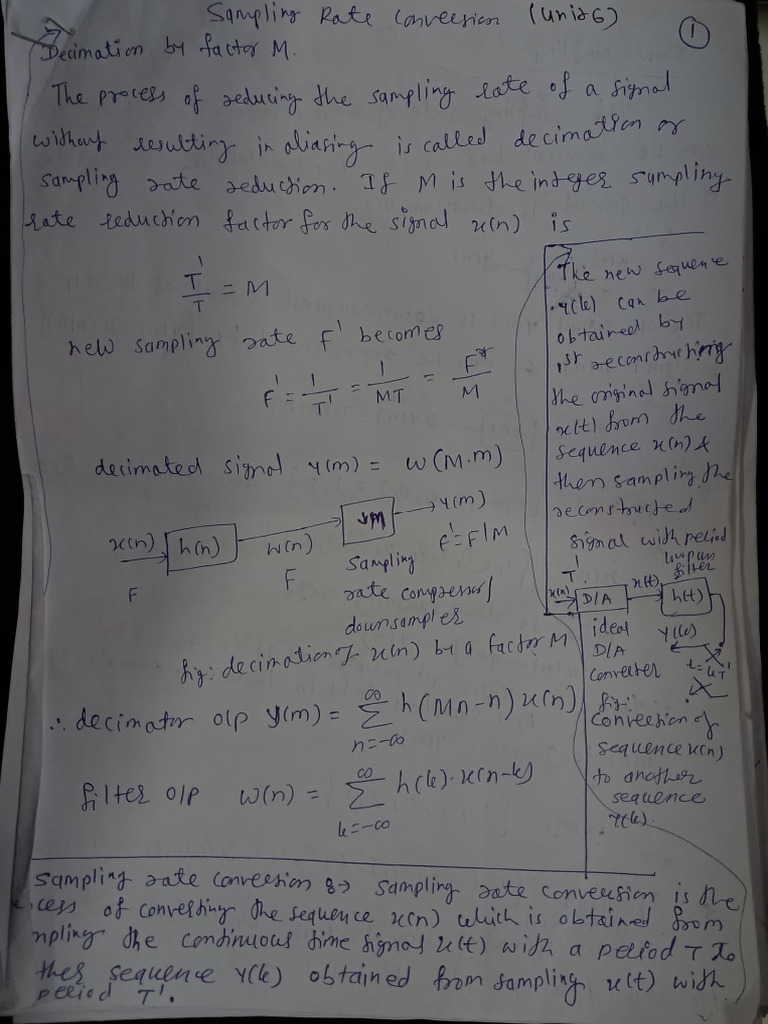 Sampling Rate Conversion (Unit 6)
1
Decimation by factor M.
The process of reducing the sampling rate of a signal
without resulting in aliasing is called decimation or
sampling rate reduction. If M is the integer sampling
rate reduction factor for the signal x(n) is
T'/T = M
new sampling rate F' becomes
F' = 1/T' = 1/MT = F/M
decimated signal y(m) = w(M.m)
x(n) h(n) w(n) ↓M y(m)
F F F' = F/M
Sampling
rate compressor/
downsampler
fig: decimation of x(n) by a factor M
∴ decimator o/p y(m) = ∑ h(Mn-n) x(n)
∞
n=-∞
filter o/p w(n) = ∑ h(k).x(n-k)
∞
k=-∞
The new sequence
y(k) can be
obtained by
1st reconstructing
the original signal
x(t) from the
sequence x(n) &
then sampling the
reconstructed
signal with period
T'
lowpass
filter
x(n) D/A x(t) h(t)
ideal
D/A
converter
y(k)
t=kT'
fig:
Conversion of
sequence x(n)
to another
sequence
y(k).
Sampling rate conversion :→ sampling rate conversion is the
cess of converting the sequence x(n) which is obtained from
mpling the continuous time signal x(t) with a period T to
ther sequence y(k) obtained from sampling x(t) with
period T'.